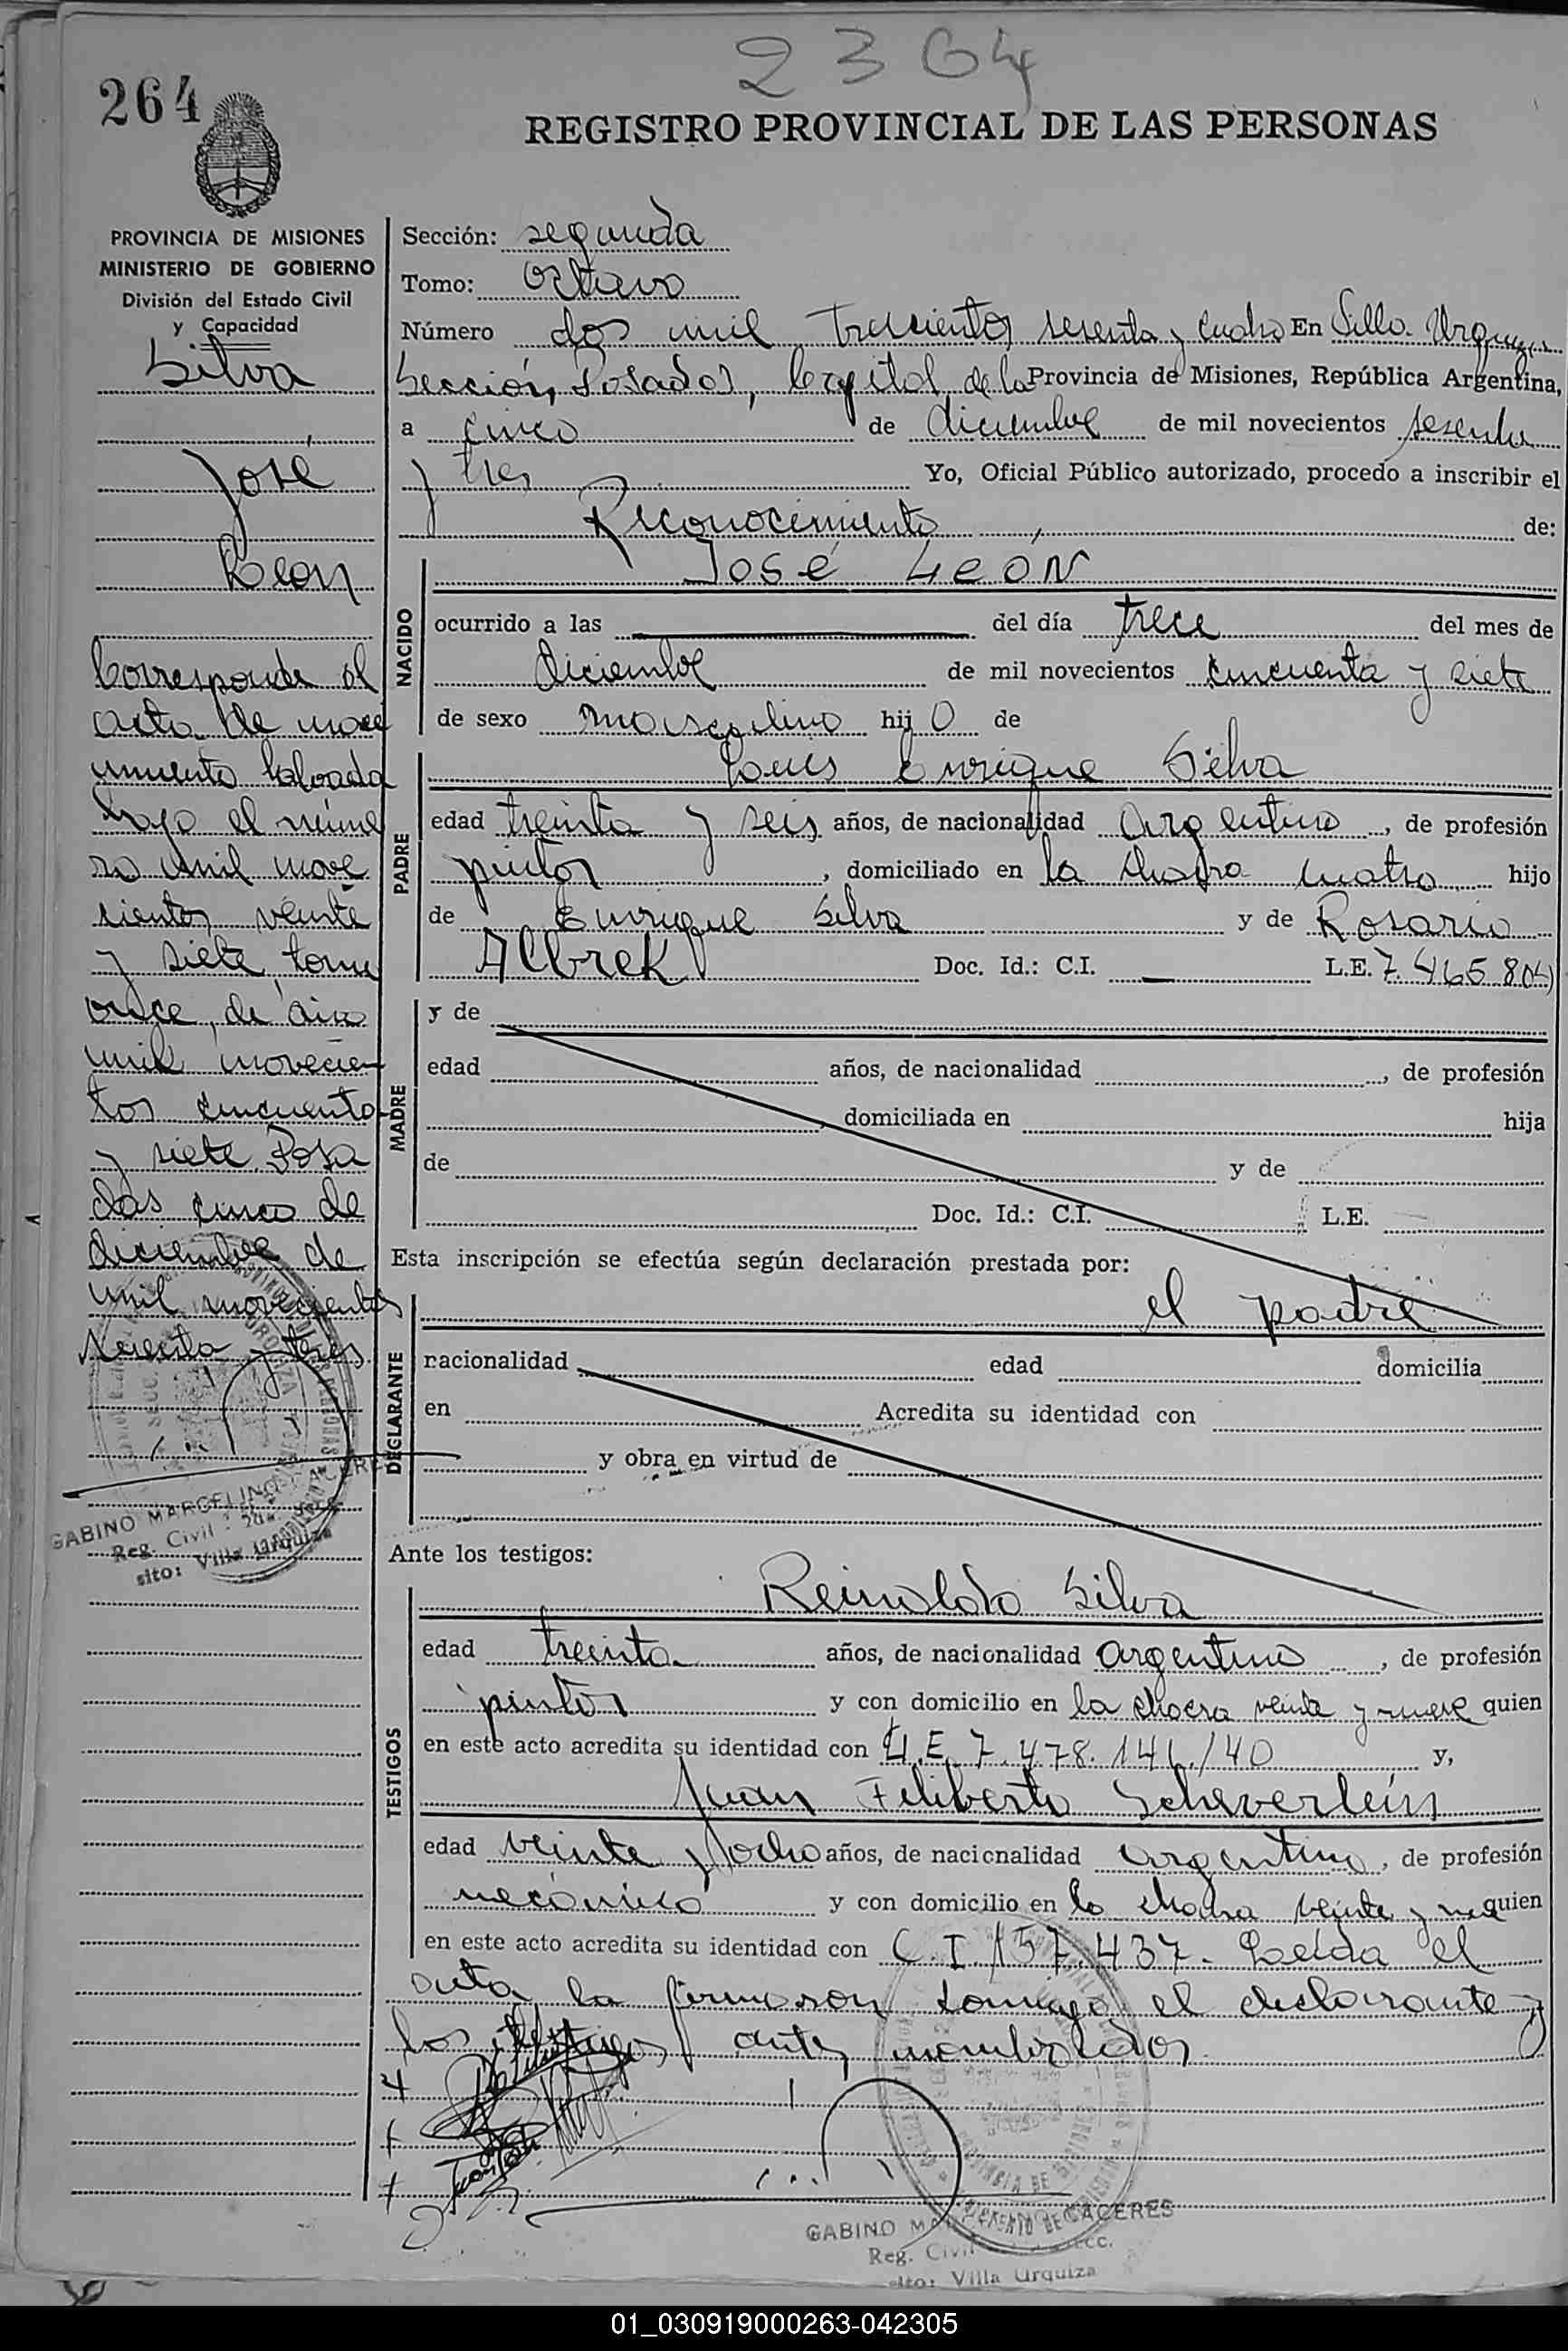 2364
264
REGISTRO PROVINCIAL DE LAS PERSONAS
PROVINCIA DE MISIONES
MINISTERIO DE GOBIERNO
División del Estado Civil
y Capacidad
Silva
José
Leon
Corresponde al
acta de naci
miento labrada
bajo el núme
ro mil nove
cientos veinte
y siete, tomo
once, de año
mil novecien
tos cincuenta
y siete. Posa
das cinco de
diciembre de
mil novecientos
sesenta y tres.
GABINO MARCELINO CACERES
Reg. Civil - 2da.
sito: Villa Urquiza
Sección: segunda
Tomo: Octavo
Número dos mil trescientos sesenta y cuatro En Villa Urquiza
Sección Posadas, Capital de la Provincia de Misiones, República Argentina,
a cinco de diciembre de mil novecientos sesenta
y tres Yo, Oficial Público autorizado, procedo a inscribir el
Reconocimiento de:
NACIDO
José León
ocurrido a las del día trece del mes de
diciembre de mil novecientos cincuenta y siete
de sexo masculino hijo de
PADRE
Luis Enrique Silva
edad treinta y seis años, de nacionalidad argentino, de profesión
pintor, domiciliado en la chacra cuatro hijo
de Enrique Silva y de Rosario
Albrek Doc. Id.: C.I. — L.E. 7.465.804
MADRE
y de
edad años, de nacionalidad , de profesión
domiciliada en hija
de y de
Doc. Id.: C.I. L.E.
Esta inscripción se efectúa según declaración prestada por:
DECLARANTE
el padre
racionalidad edad domicilia
en Acredita su identidad con
y obra en virtud de
Ante los testigos:
TESTIGOS
Reinaldo Silva
edad treinta años, de nacionalidad argentino, de profesión
pintor y con domicilio en la chacra veinte y nueve quien
en este acto acredita su identidad con L.E. 7.478.141/40 y,
Juan Feliberto Scheverlein
edad veinte y ocho años, de nacionalidad argentino, de profesión
mecánico y con domicilio en la chacra veinte y quien
en este acto acredita su identidad con C.I. 157.437. Leída el
acta la firmaron conmigo el declarante y
los testigos antes nombrados.
GABINO CACERES
Reg. Civil
sito: Villa Urquiza
01_030919000263-042305